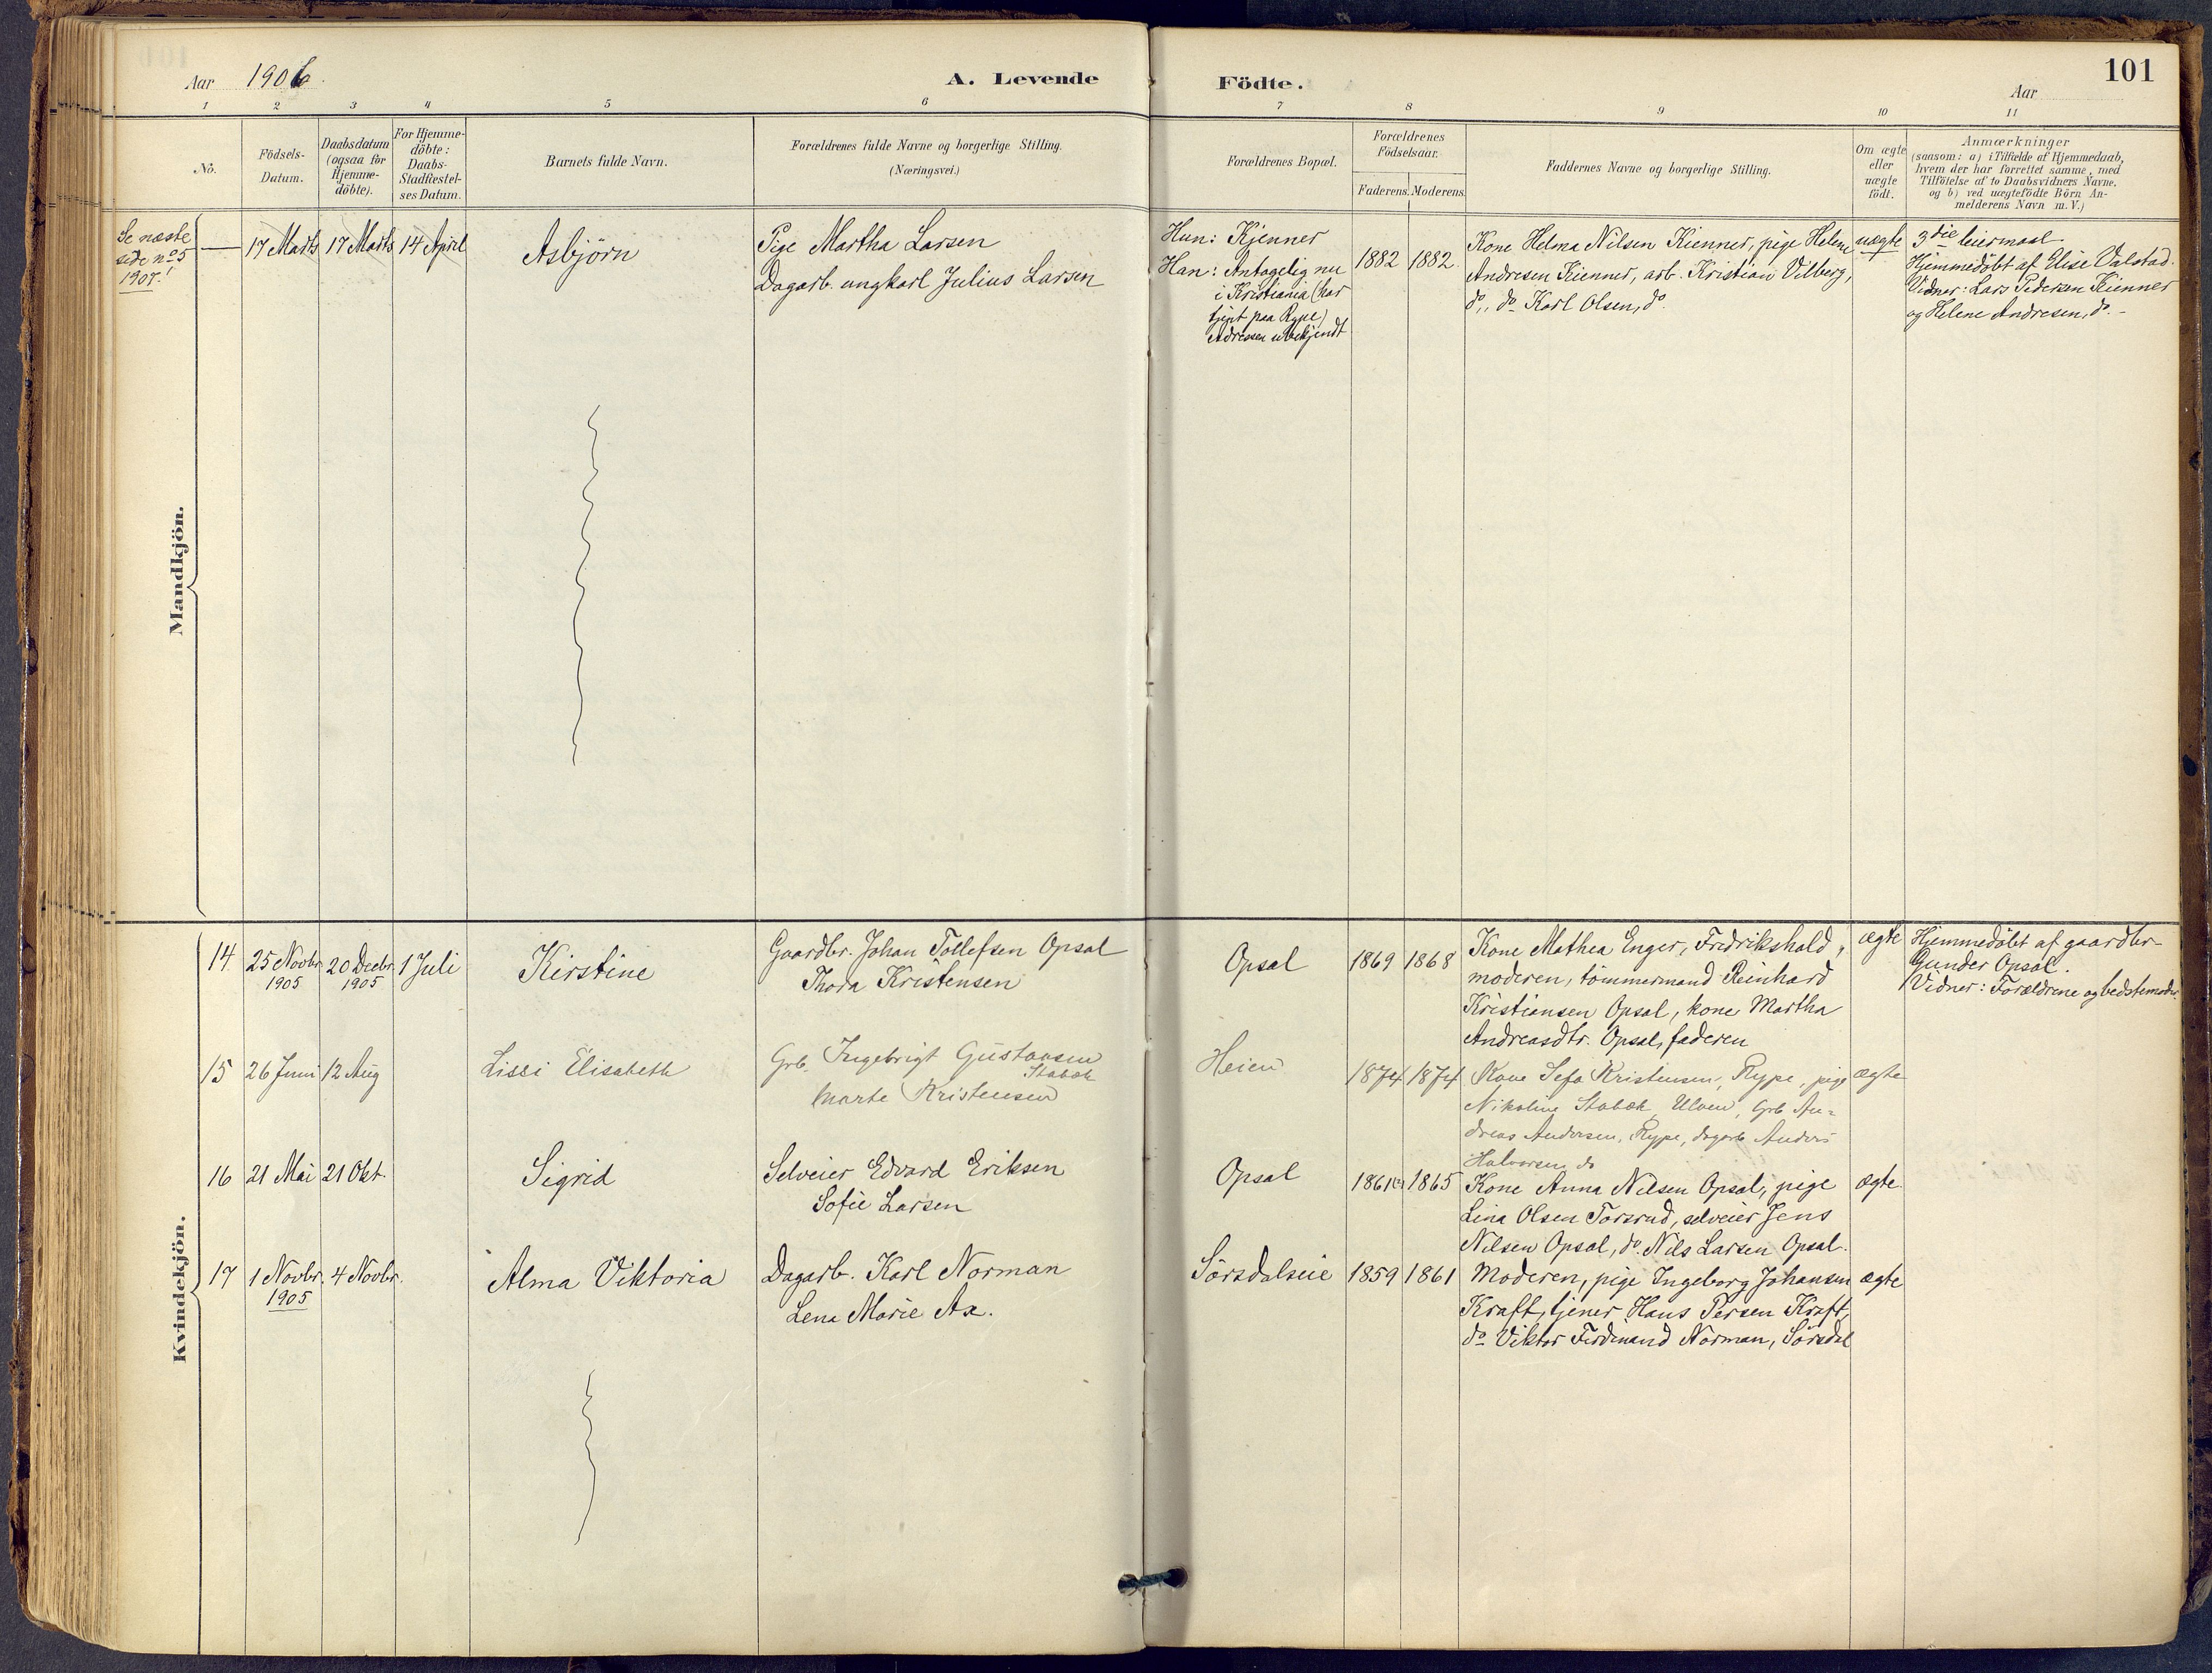 Aar 1906.
A. Levende Födte.
Aar
101
1 2 3 4 5 6 7 8 9 10 11
No.
Födsels-
Datum.
Daabsdatum
(ogsaa for
Hjemme-
döbte).
For Hjemme-
döbte:
Daabs-
Stadfæstel-
ses Datum.
Barnets fulde Navn.
Forældrenes fulde Navne og borgerlige Stilling.
(Næringsvei.)
Forældrenes Bopæl.
Forældrenes
Födselsaar.
Faderens. Moderens.
Faddernes Navne og borgerlige Stilling.
Om ægte
eller
uægte
födt.
Anmærkninger
(saasom: a) i Tilfælde af Hjemmedaab,
hvem der har forrettet samme, med
Tilföielse af to Daabsvidners Navne,
og b) ved uægtefödte Börn An-
melderens Navn m. V.)
Mandkjön.
Se næste
side no 5
1907!
17 Marts
17 Marts
14 April
Asbjörn
Pige Martha Larsen
Dagarb. ungkarl Julius Larsen
Hun: Kjenner
Han: Antagelig nu
i Kristiania (har
tjent paa Rype)
Adressen ubekjendt
1882
1882.
Kone Helma Nilsen Kienner, pige Helene
Andresen Kienner, arb. Kristian Vilberg,
do, do Karl Olsen, do
uægte
3die leiermaal.
Hjemmedöbt af Elise Valstad.
Vidner: Lars Pedersen Kienner
og Helene Andresen, do. -
Kvindekjön.
14
25 Novbr
1905
20 Decbr
1905
1 Juli
Kirstine
Gaardbr. Johan Tollefsen Opsal
Thora Kristensen
Opsal
1869
1868
Kone Mathea Enger, Fredrikshald,
moderen, tömmermand Reinhard
Kristiansen Opsal, kone Martha
Andreasdtr. Opsal, faderen
ægte
Hjemmedöbt af gaardbr
Gunder Opsal.
Vidner: Forældrene og bedstemoder
15
26 Juni
12 Aug
Lissi Elisabeth
Grb. Ingebrigt Gustavsen
Stabæk
Marte Kristensen
Heien
1874
1874
Kone Sefa Kristensen, Rype, pige
Nikoline Stabæk, Ulven, Grb An-
dreas Andersen, Rype, dagarb Anders
Halvorsen do
ægte
16
21 Mai
21 Okt.
Sigrid
Selveier Edvard Eriksen
Sofie Larsen
Opsal
1861
1865
Kone Anna Nilsen Opsal, pige
Lina Olsen Torsrud, selveier Jens
Nilsen Opsal, do Nils Larsen Opsal.
ægte.
17
1 Novbr.
1905
4 Novbr.
Alma Viktoria
Dagarb. Karl Norman
Lena Marie Ax.
Sörsdalseie
1859
1861
Moderen, pige Ingeborg Johansen
Kraft, tjener Hans Persen Kraft,
do Viktor Ferdinand Norman, Sörsdal
ægte